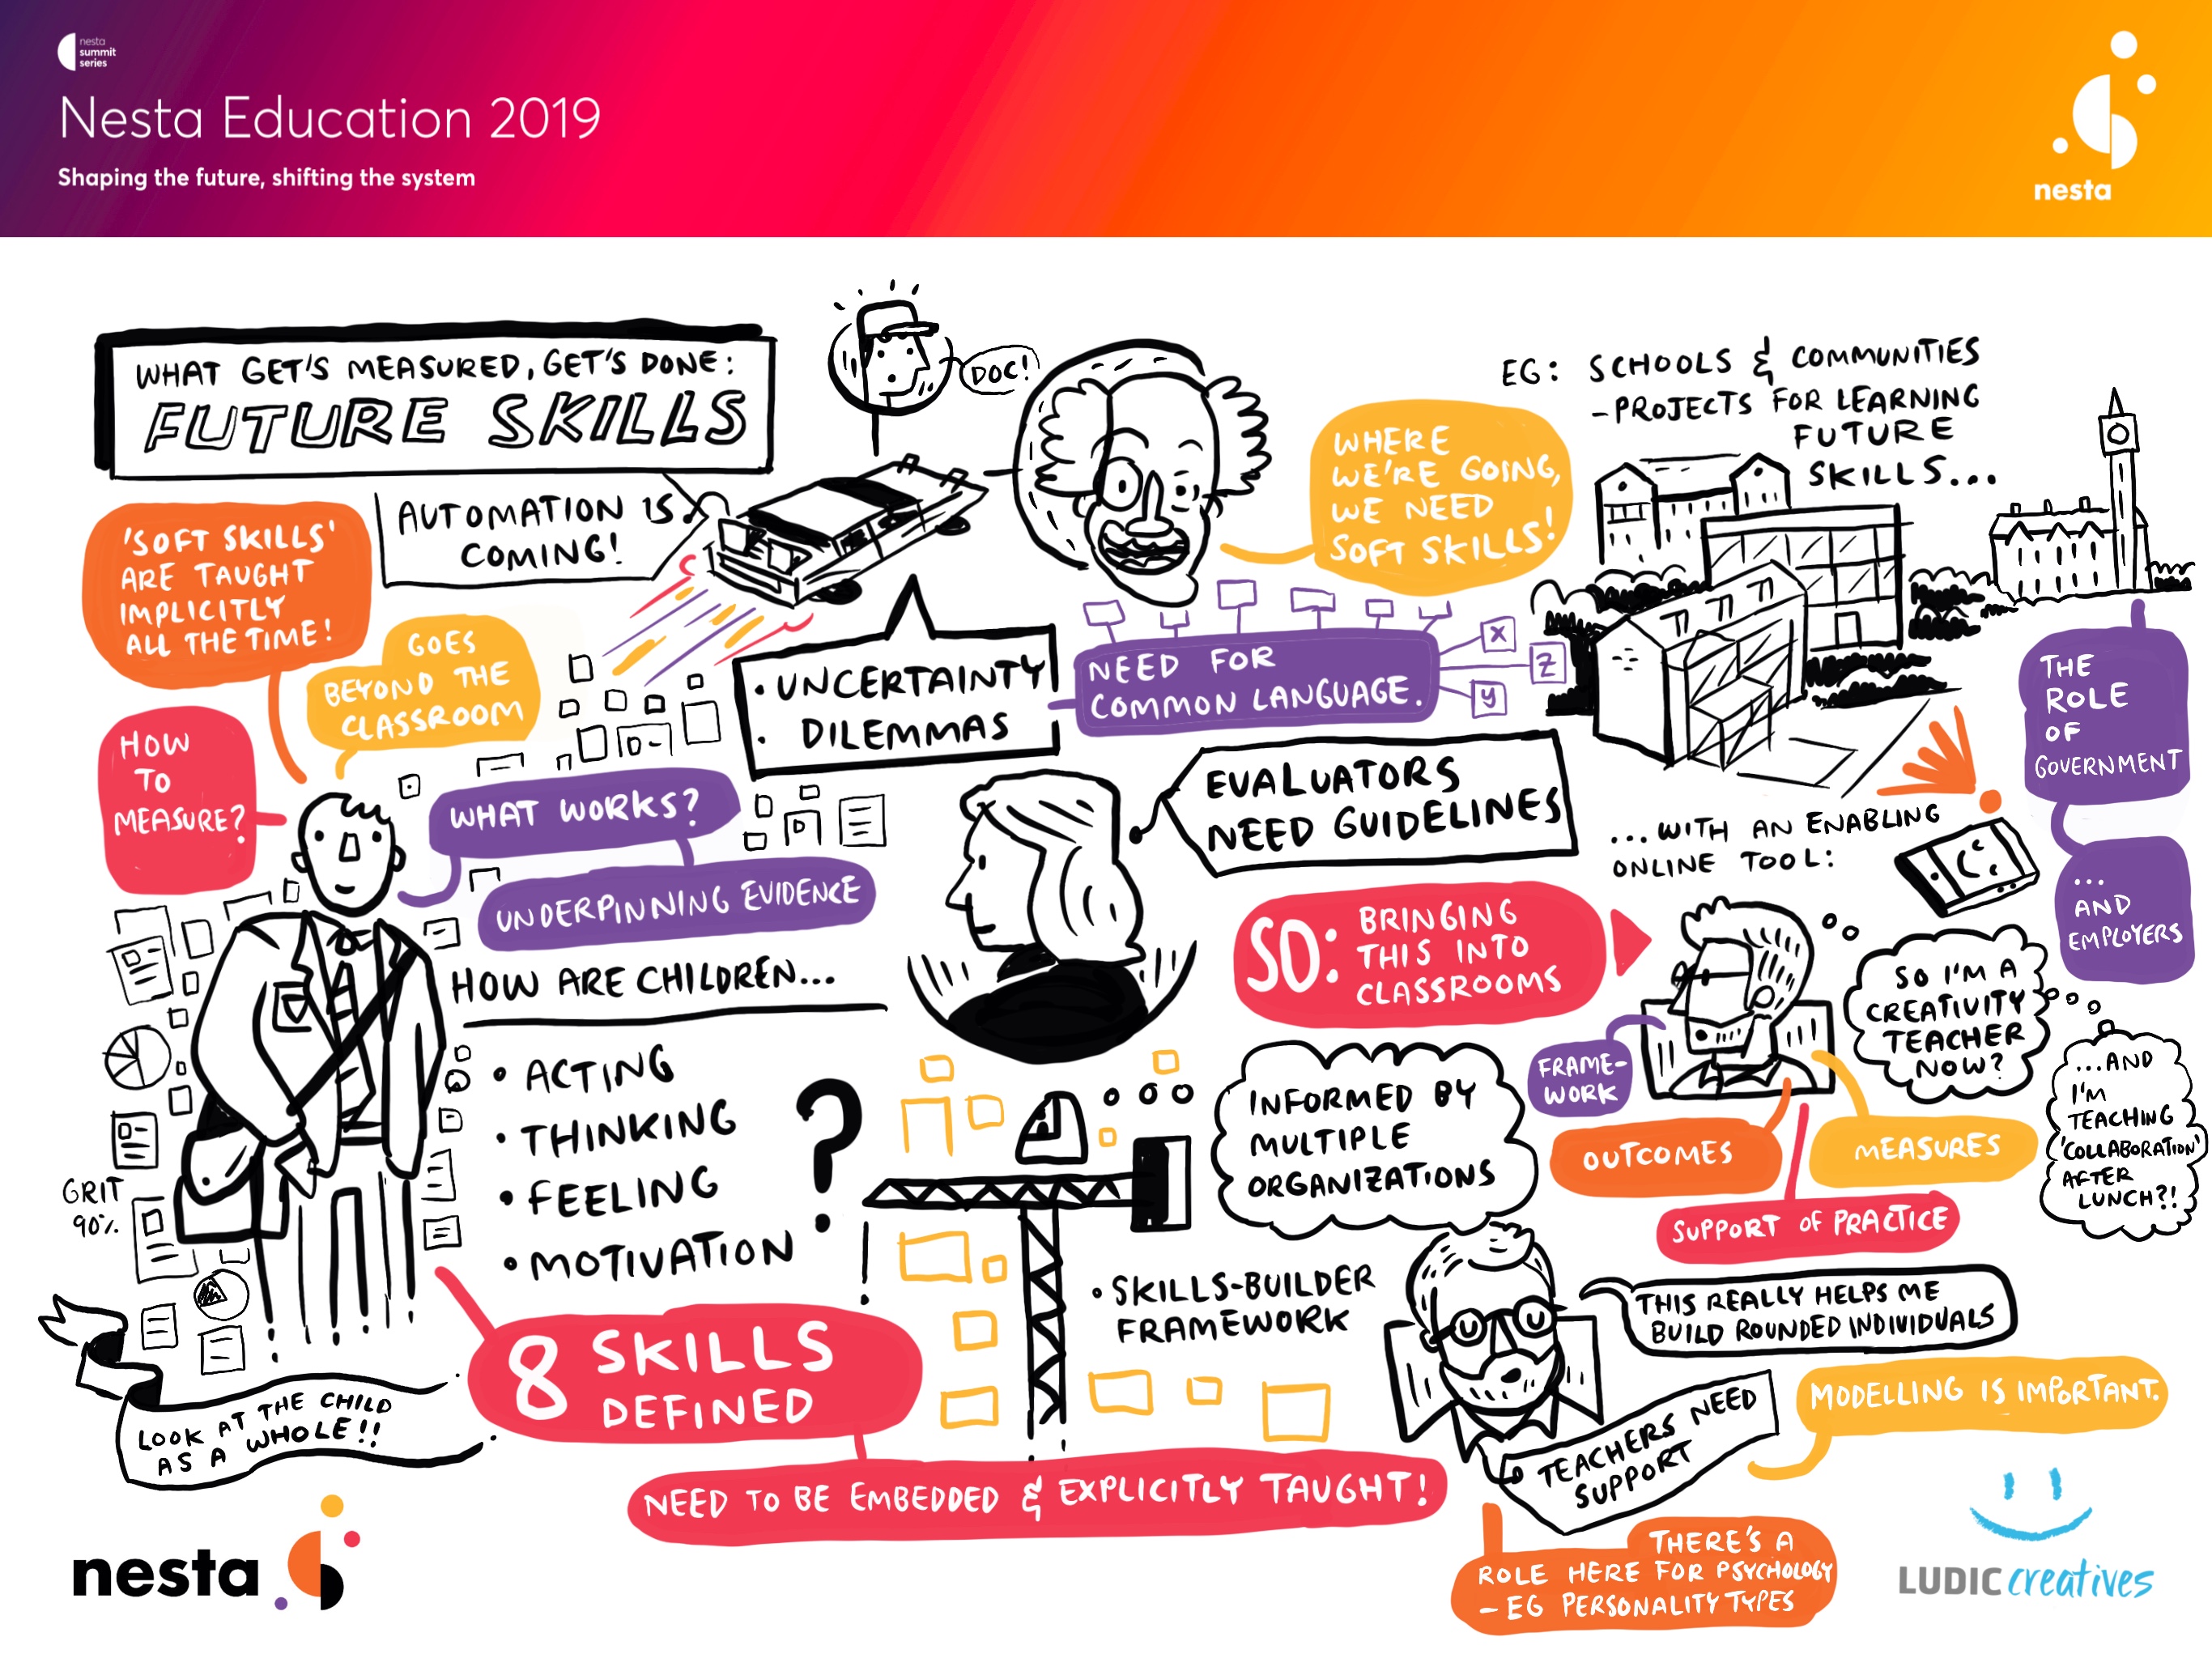 nesta
summit
series
Nesta Education 2019
Shaping the future, shifting the system
nesta
WHAT GET'S MEASURED, GET'S DONE:
FUTURE SKILLS
DOC!
AUTOMATION IS
COMING!
WHERE
WE'RE GOING,
WE NEED
SOFT SKILLS!
EG: SCHOOLS & COMMUNITIES
- PROJECTS FOR LEARNING
FUTURE
SKILLS...
'SOFT SKILLS'
ARE TAUGHT
IMPLICITLY
ALL THE TIME!
GOES
BEYOND THE
CLASSROOM
HOW
TO
MEASURE?
WHAT WORKS?
UNDERPINNING EVIDENCE
• UNCERTAINTY
• DILEMMAS
NEED FOR
COMMON LANGUAGE.
X
Z
y
EVALUATORS
NEED GUIDELINES
THE
ROLE
OF
GOVERNMENT
...
AND
EMPLOYERS
...WITH AN ENABLING
ONLINE TOOL:
HOW ARE CHILDREN...
• ACTING
• THINKING
• FEELING
• MOTIVATION
?
GRIT
90%
LOOK AT THE CHILD
AS A WHOLE!!
8 SKILLS
DEFINED
NEED TO BE EMBEDDED & EXPLICITLY TAUGHT!
SO: BRINGING
THIS INTO
CLASSROOMS
SO I'M A
CREATIVITY
TEACHER
NOW?
...AND
I'M
TEACHING
'COLLABORATION'
AFTER
LUNCH?!
FRAME-
WORK
OUTCOMES
MEASURES
SUPPORT OF PRACTICE
INFORMED BY
MULTIPLE
ORGANIZATIONS
• SKILLS-BUILDER
FRAMEWORK
THIS REALLY HELPS ME
BUILD ROUNDED INDIVIDUALS
TEACHERS NEED
SUPPORT
MODELLING IS IMPORTANT.
THERE'S A
ROLE HERE FOR PSYCHOLOGY
- EG PERSONALITY TYPES
nesta
LUDIC creatives